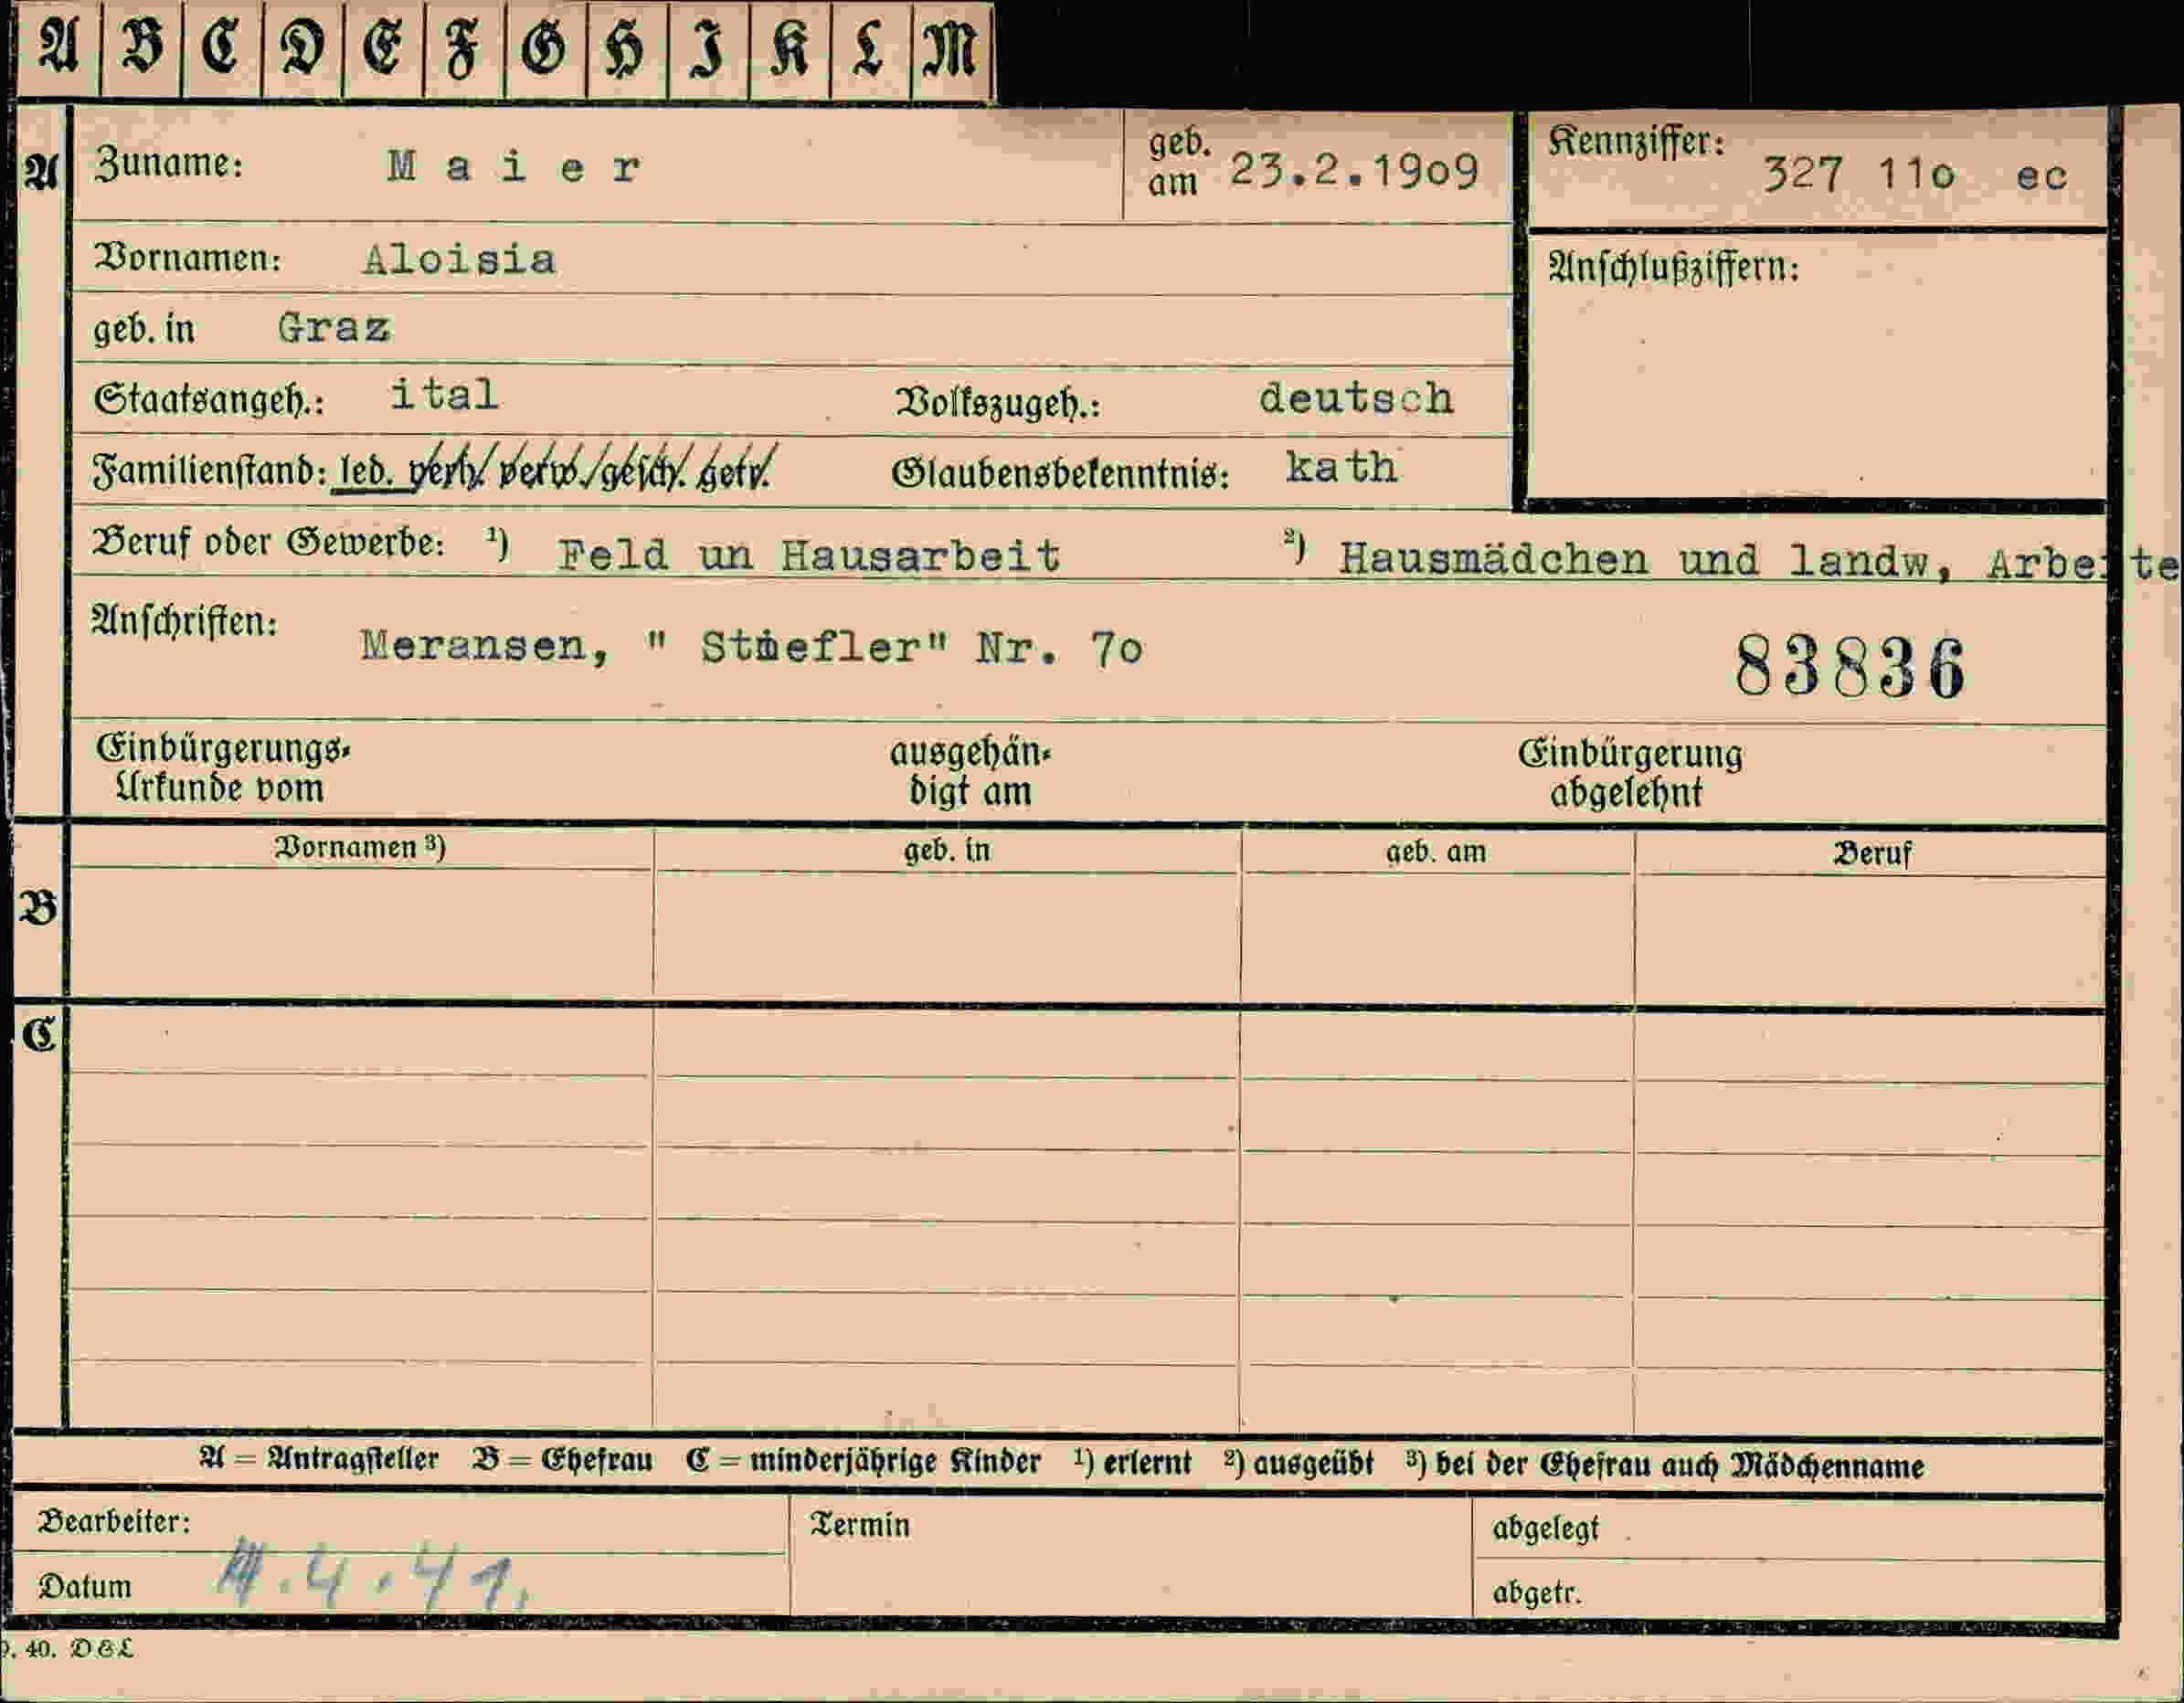 A B C D E F G H I K L M
A Zuname: Maier geb. am 23.2.19o9 Kennziffer: 327 11o ec
Vornamen: Aloisia Anschlußziffern:
geb. in Graz
Staatsangeh.: ital Volkszugeh.: deutsch
Familienstand: led. verh. verw. gesch. getr. Glaubensbekenntnis: kath
Beruf oder Gewerbe: ¹) Feld un Hausarbeit ²) Hausmädchen und landw, Arbeite
Anschriften: Meransen, " Stiefler" Nr. 7o 83836
Einbürgerungs- ausgehän- Einbürgerung
Urkunde vom digt am abgelehnt
Vornamen ³) geb. in geb. am Beruf
B
C
A = Antragsteller B = Ehefrau C = minderjährige Kinder ¹) erlernt ²) ausgeübt ³) bei der Ehefrau auch Mädchenname
Bearbeiter: Termin abgelegt
Datum 4.41. abgetr.
40. D&L